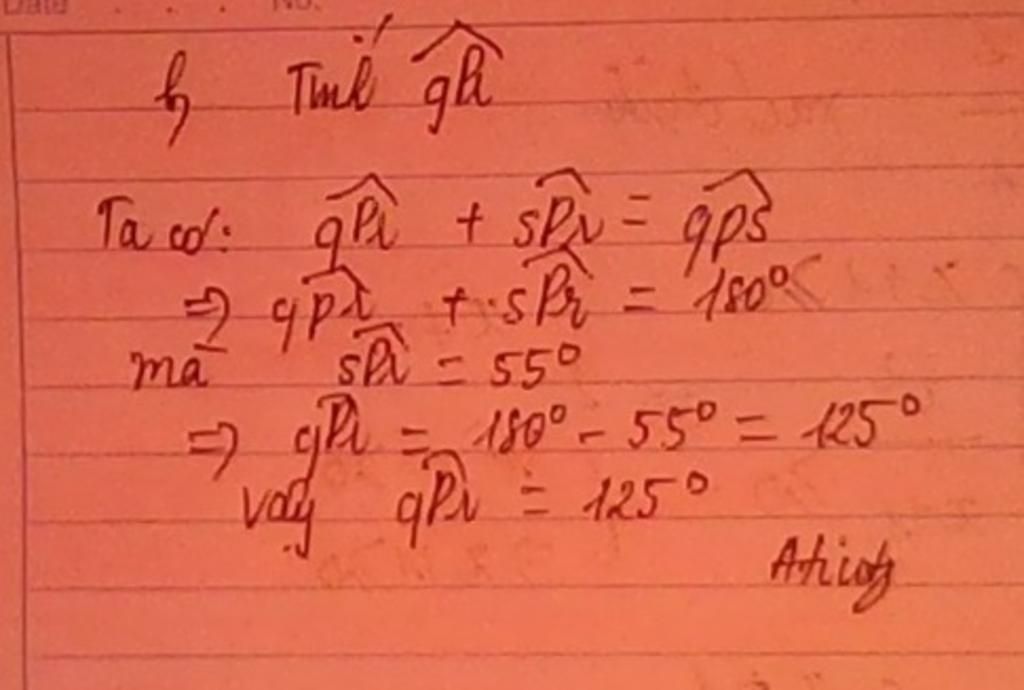 Date . . . No.
b, Tính \widehat{qPr}
Ta có: \widehat{qPr} + \widehat{sPr} = \widehat{qps}
=> \widehat{qpr} + \widehat{sPr} = 180°
mà \widehat{sPr} = 55°
=> \widehat{qPr} = 180° - 55° = 125°
vậy \widehat{qPr} = 125°